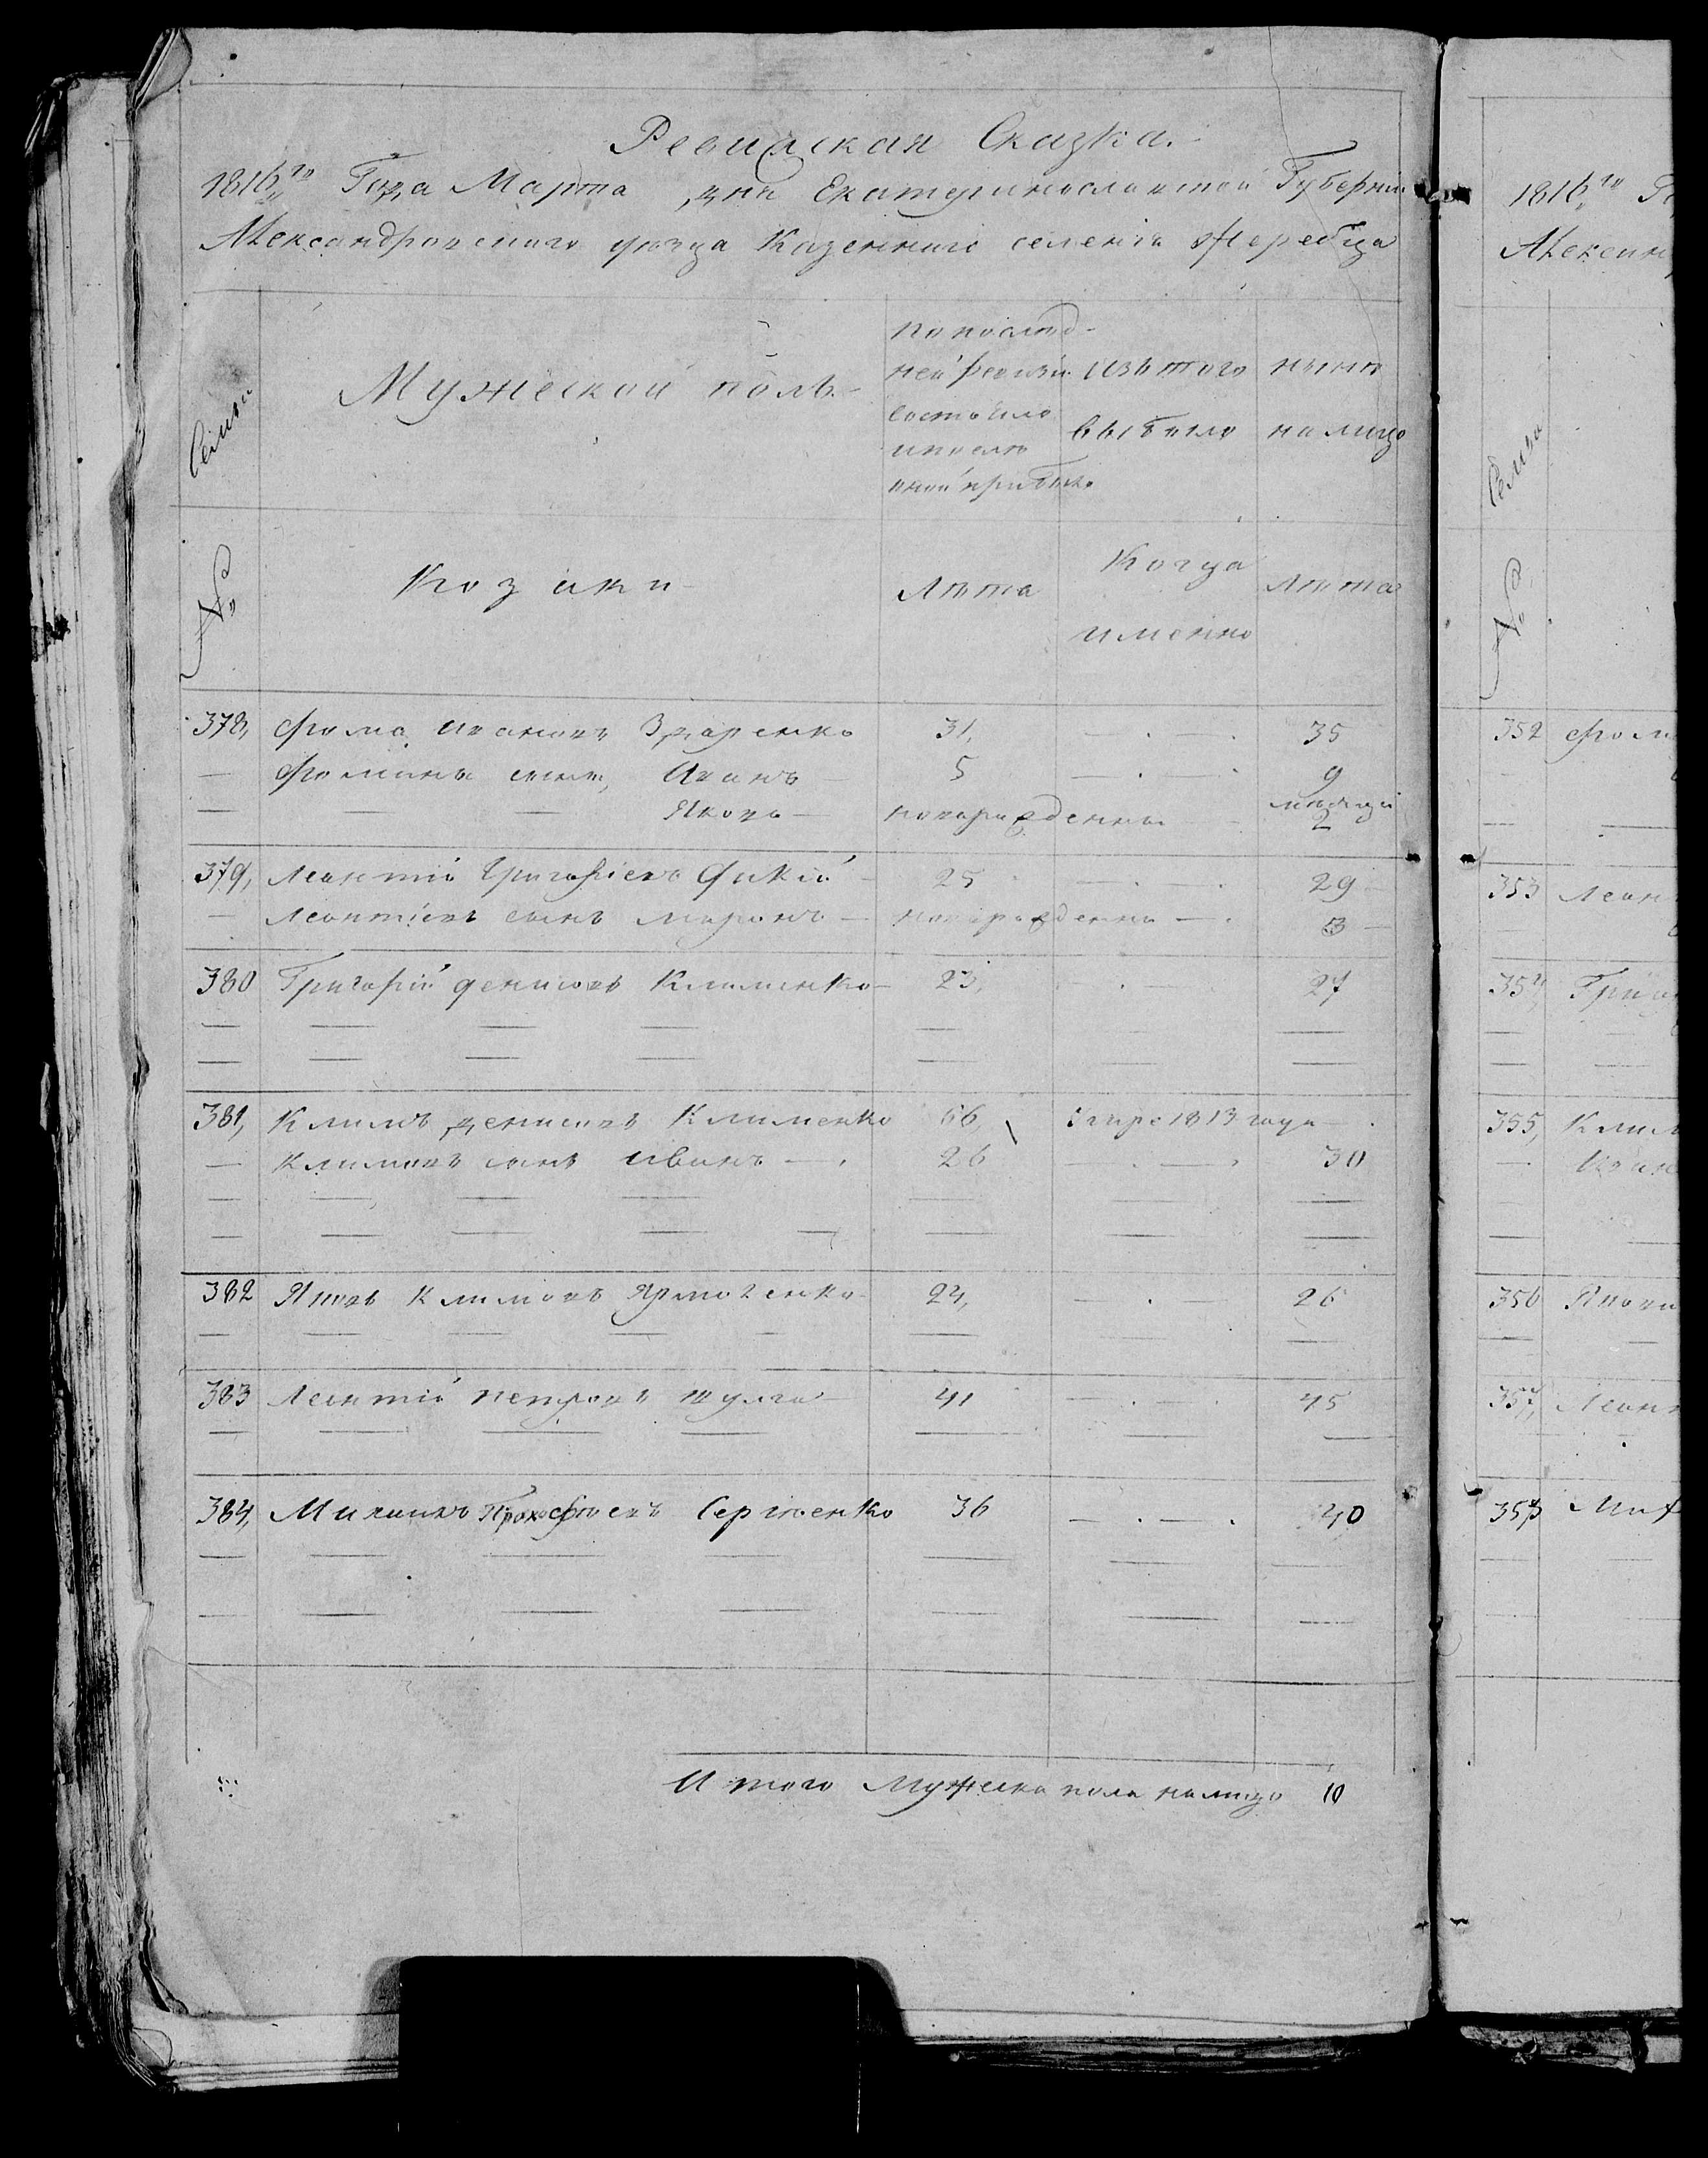 Ревизская Сказка.
1816го Года Марта дня Екатеринославской Губернии
Александровского уезда Казенного селения Жеребца
Семьи
Мужеской полъ
по послед-
ней ревизіи
состояло
и после
оной прибыло
изъ того
выбыло
ныне
на лицо
№
Козаки
Лета
Когда
именно
Лета
378, Фома Ивановъ 31, 35
— Фоминъ сынъ, Иванъ 5 9
— — — Яковъ новорожденны месяцы 2
379, Леонтій Григорьевъ 25 29
— Леонтіевъ сынъ Миронъ — новорожденны — 3
380 Григорій Денисовъ Клименко 23, 27
381, Климъ Денисовъ Клименко 66, умре 1813 года
— Климовъ сынъ Иванъ — 26 30
382 Яковъ Климовъ Ярмоленко 24, 26
383 Леонтій Петровъ Шулга 41 45
384, Михаилъ Прокофьевъ Сергіенко 36 40
Итого Мужеска пола налицо 10
1816го Го
Алексан
Семьи
№
352 Фом
353 Леон
354 Григ
355, Клим
356 Якови
357, Леон
358 Мих